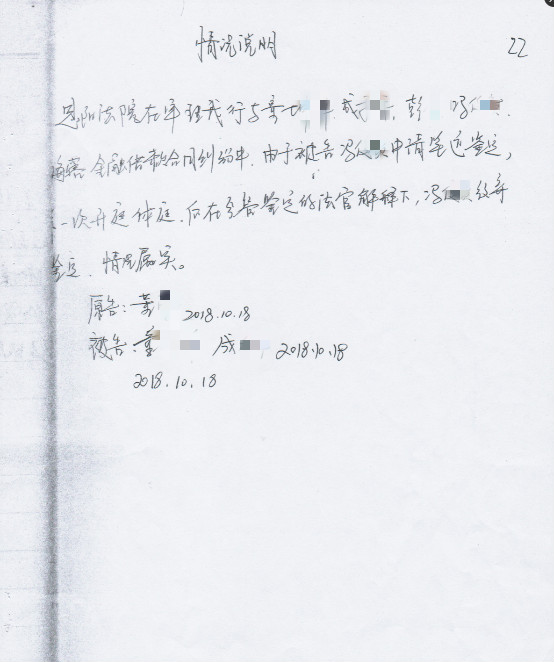 情况说明
22
恩阳法院在审理我行与 成 彭 冯
金融借款合同纠纷中,由于被告冯 申请笔迹鉴定,
一次开庭休庭,后在 鉴定的法官解释下,冯
鉴定,情况属实。
原告: 2018.10.18
被告: 成 2018.10.18
2018.10.18